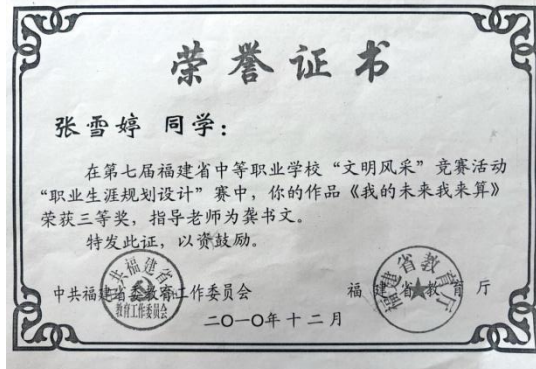 荣誉证书
张雪婷 同学：
在第七届福建省中等职业学校“文明风采”竞赛活动
“职业生涯规划设计”赛中，你的作品《我的未来我来算》
荣获三等奖，指导老师为龚书文。
特发此证，以资鼓励。
中共福建省委教育工作委员会
福建省教育厅
二〇一〇年十二月
中共福建省委
教育工作委员会
福建省教育厅